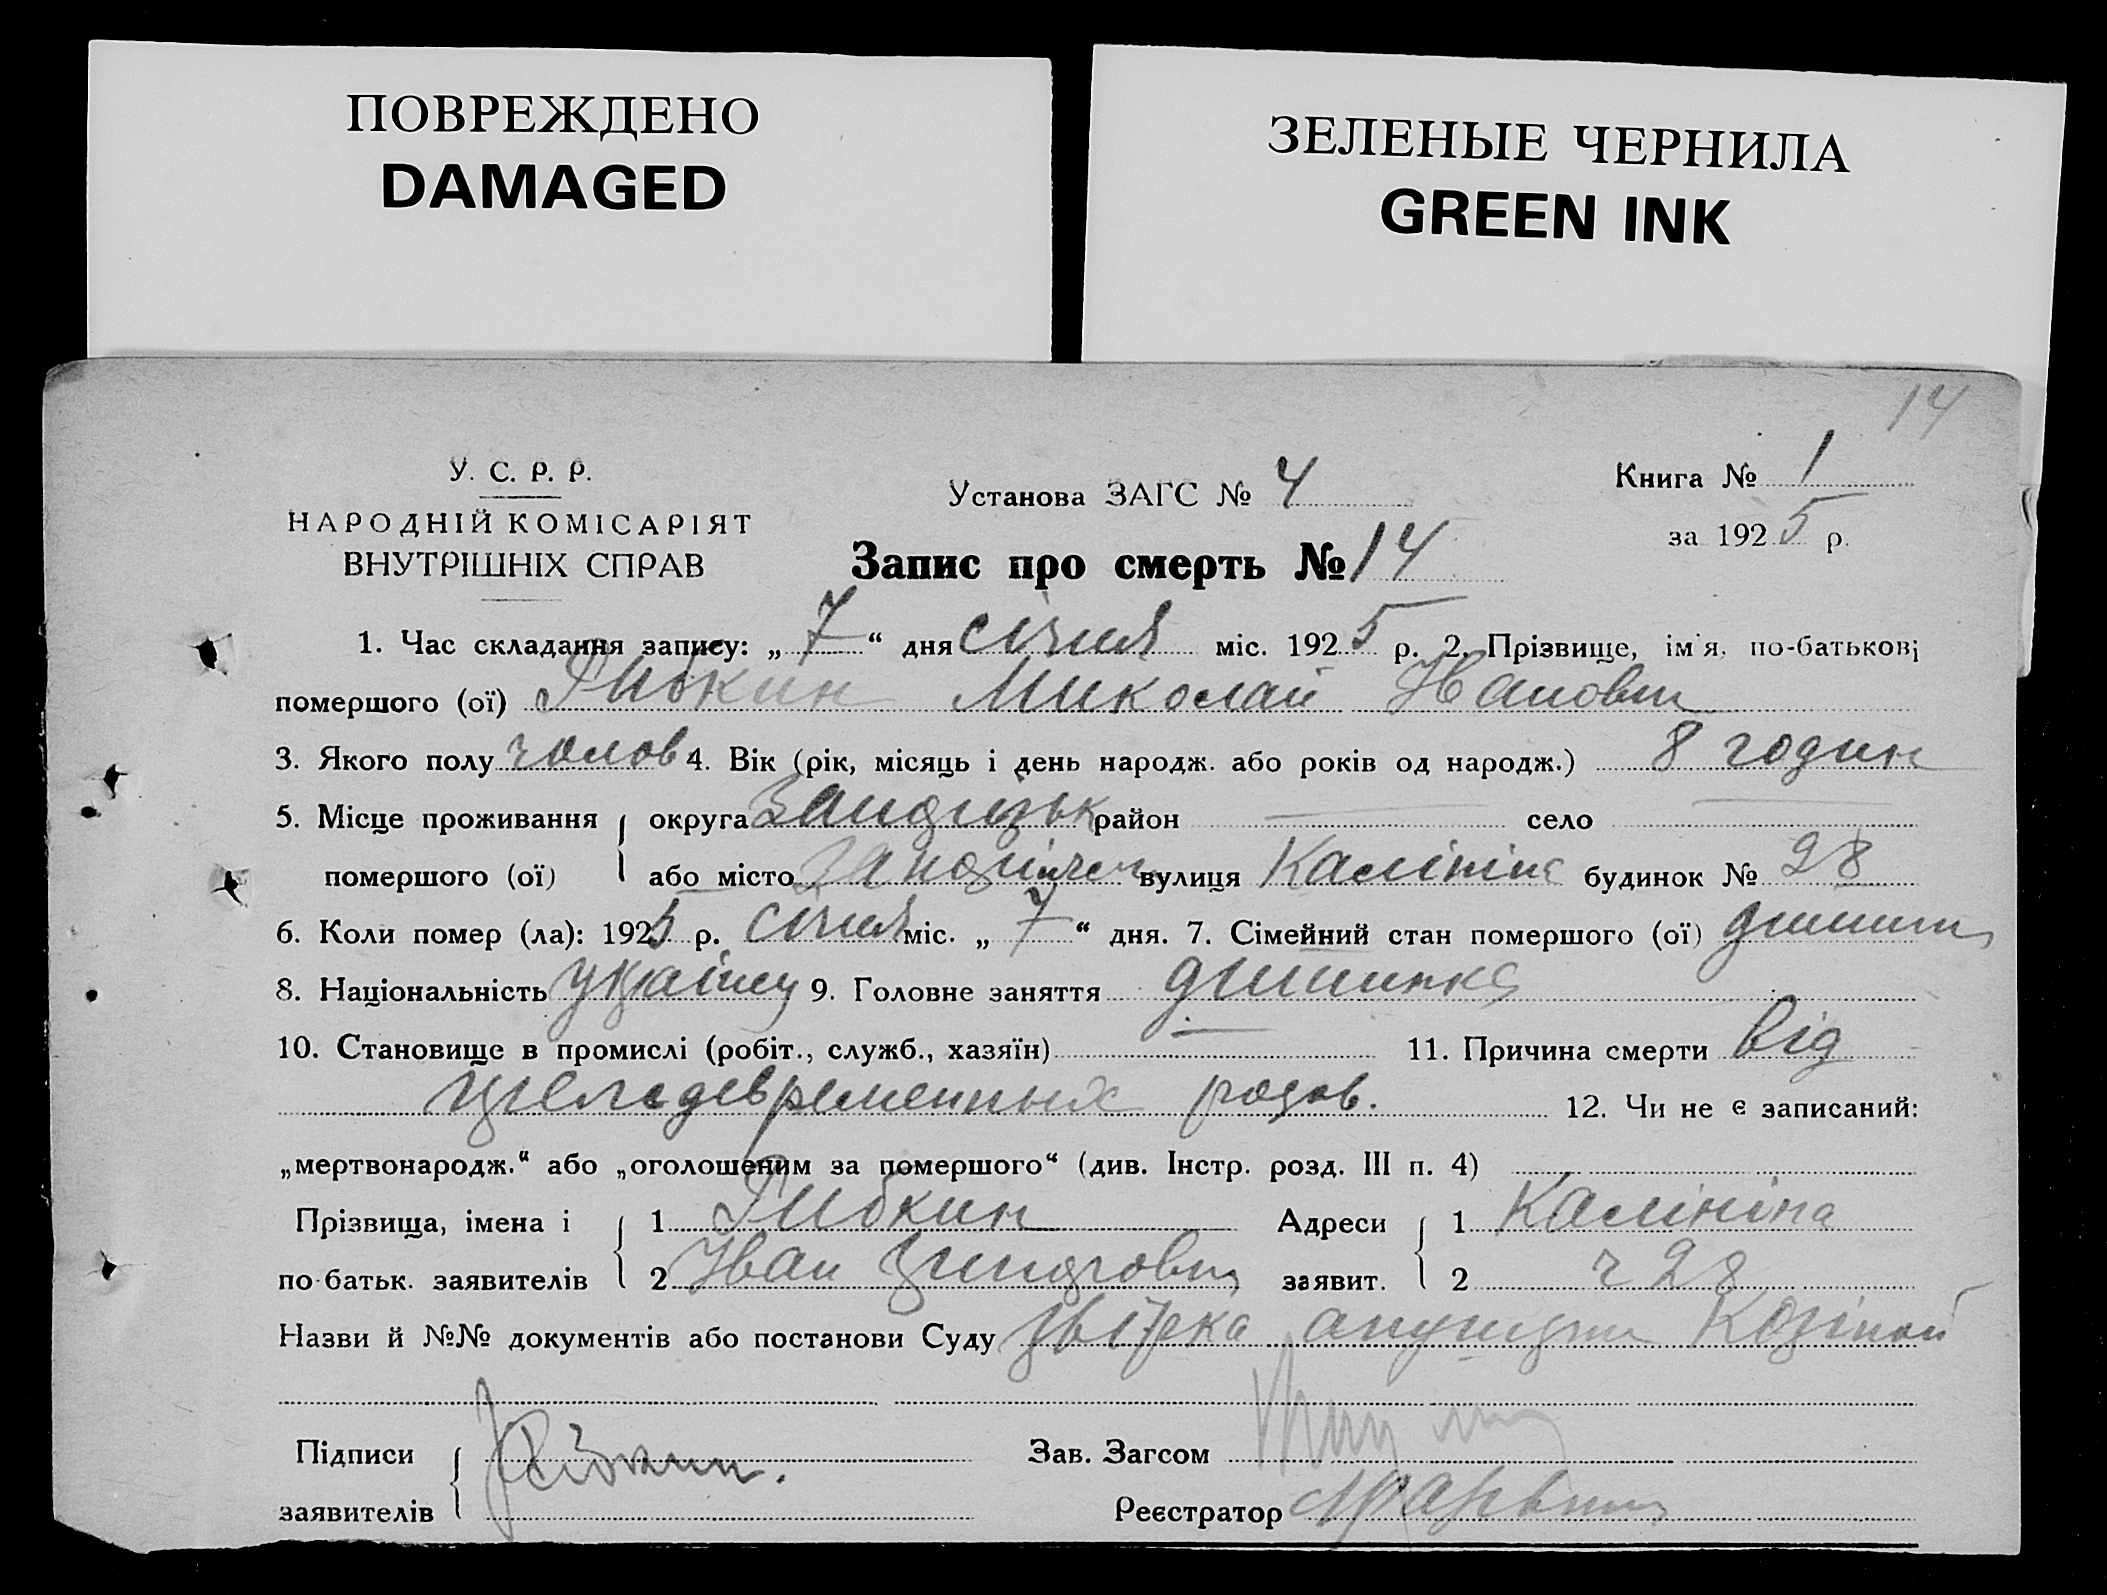 ПОВРЕЖДЕНО
DAMAGED
ЗЕЛЕНЫЕ ЧЕРНИЛА
GREEN INK
14
У. С. Р. Р.
НАРОДНІЙ КОМІСАРІЯТ
ВНУТРІШНІХ СПРАВ
Установа ЗАГС № 4
Книга № 1
за 1925 р.
Запис про смерть № 14
1. Час складання запису: „7“ дня січня міс. 1925 р. 2. Прізвище, ім'я, по-батькові
помершого (ої) Рибкин Миколай Іванович
3. Якого полу чолов 4. Вік (рік, місяць і день народж. або років од народж.) 8 годин
5. Місце проживання округа район село
помершого (ої) або місто вулиця Калініна будинок № 28
6. Коли помер (ла): 1925 р. січня міс. „7“ дня. 7. Сімейний стан помершого (ої)
8. Національність 9. Головне заняття дитинка
10. Становище в промислі (робіт., служб., хазяїн) 11. Причина смерти від
родов. 12. Чи не є записаний:
„мертвонародж.“ або „оголошеним за помершого“ (див. Інстр. розд. III п. 4)
Прізвища, імена і 1 Рибкин Адреси 1 Калініна
по-батьк. заявителів 2 Іван заявит. 2 ч 28
Назви й №№ документів або постанови Суду
Підписи Зав. Загсом
заявителів Реєстратор